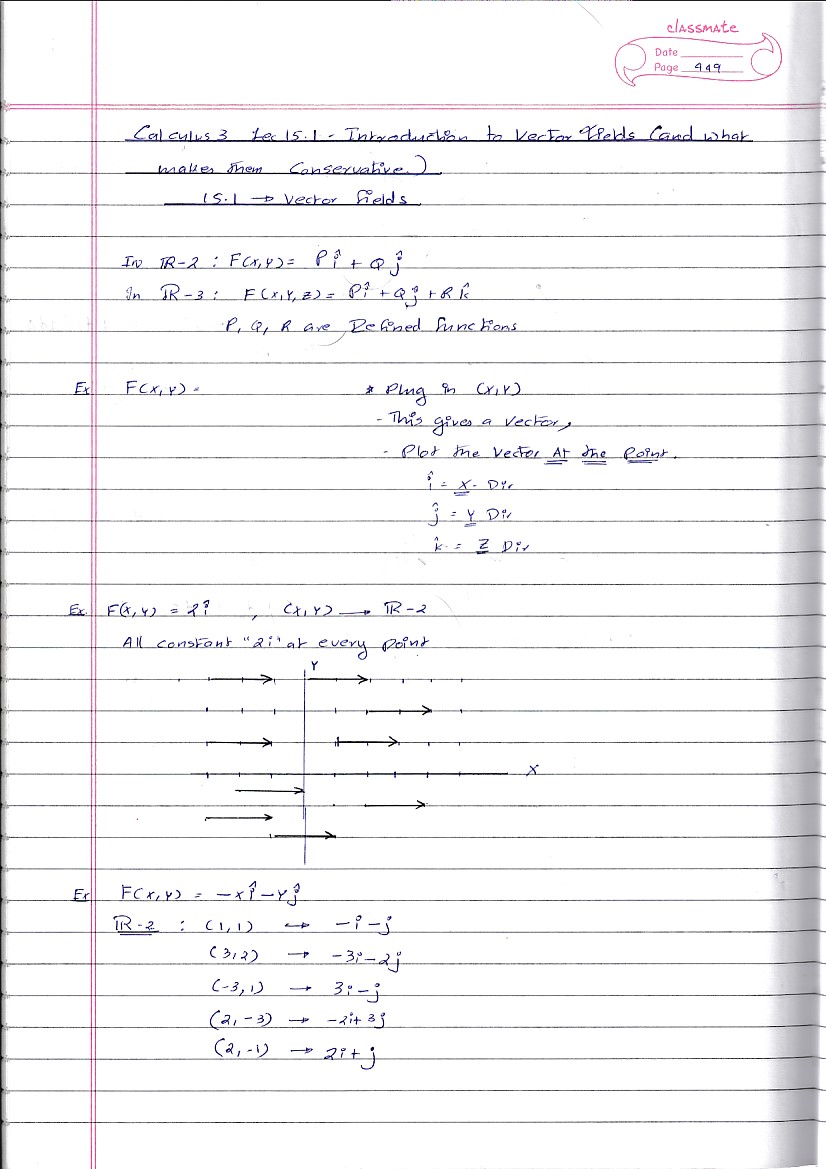 classmate
Date
Page 449
Calculus 3 Lec 15.1 - Introduction to Vector Fields (and what
makes them Conservative.)
15.1 → Vector fields
In ℝ-2 : F(x,y) = Pî + Qĵ
In ℝ-3 : F(x,y,z) = Pî + Qĵ + Rk̂
P, Q, R are Defined functions
Ex F(x,y) =
* Plug in (x,y)
- This gives a vector,
- Plot the vector At the Point.
î = x - Dir
ĵ = y Dir
k̂ = z Dir
Ex. F(x,y) = 2î , (x,y) → ℝ-2
All constant "2i" at every point
Y
X
Ex F(x,y) = -xî - yĵ
ℝ-2 : (1,1) → -i-j
(3,2) → -3i-2j
(-3,1) → 3i-j
(2,-3) → -2i+3j
(2,-1) → 2i+j